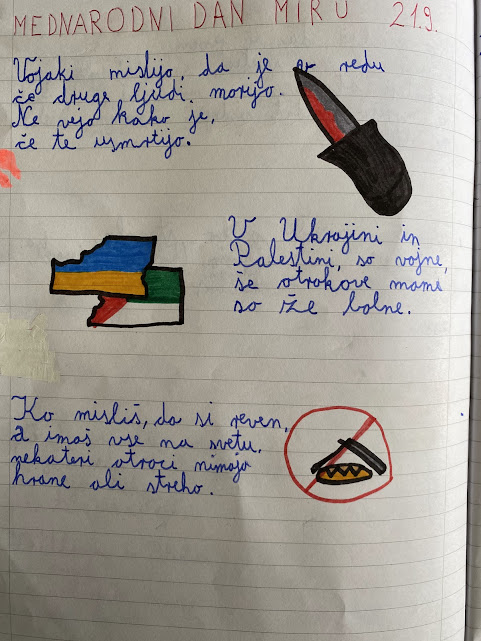 MEDNARODNI DAN MIRU 21.9.
Vojaki mislijo, da je v redu
če druge ljudi morijo.
Ne vejo kako je,
če te usmrtijo.
V Ukrajini in
Palestini, so vojne,
še otrokove mame
so že bolne.
Ko misliš, da si reven,
a imaš vse na svetu,
nekateri otroci nimajo
hrane ali streho.